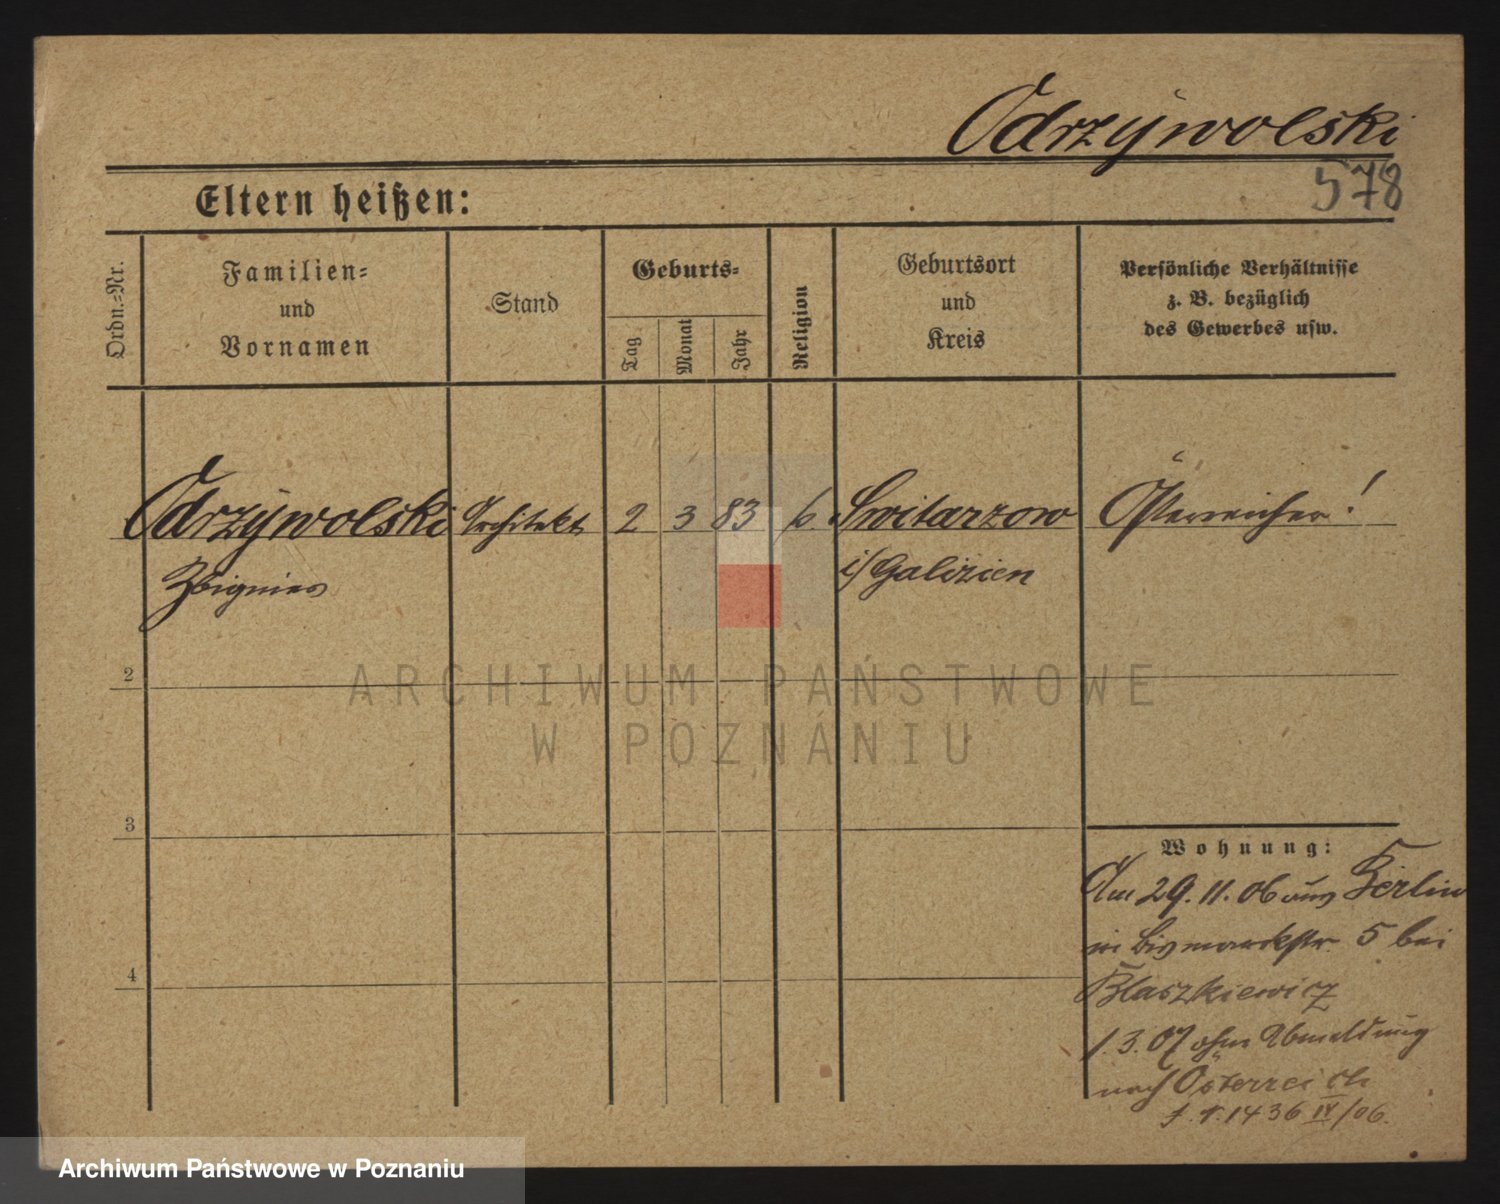 Odrzywolski
578
Eltern heißen:
Ordn.-Nr.
Familien-
und
Vornamen
Stand
Geburts-
Tag
Monat
Jahr
Religion
Geburtsort
und
Kreis
Persönliche Verhältnisse
z. B. bezüglich
des Gewerbes usw.
Odrzywolski Architekt 2 3 83 k. Switarzow Österreicher!
Zbigniew i/Galizien
2
3
4
Wohnung:
Am 29.11.06 aus Berlin
in Bismarckstr. 5 bei
Blaszkiewicz
1.3.07 ohne Abmeldung
nach Österreich
1436 IV/06.
ARCHIWUM PAŃSTWOWE
W POZNANIU
Archiwum Państwowe w Poznaniu